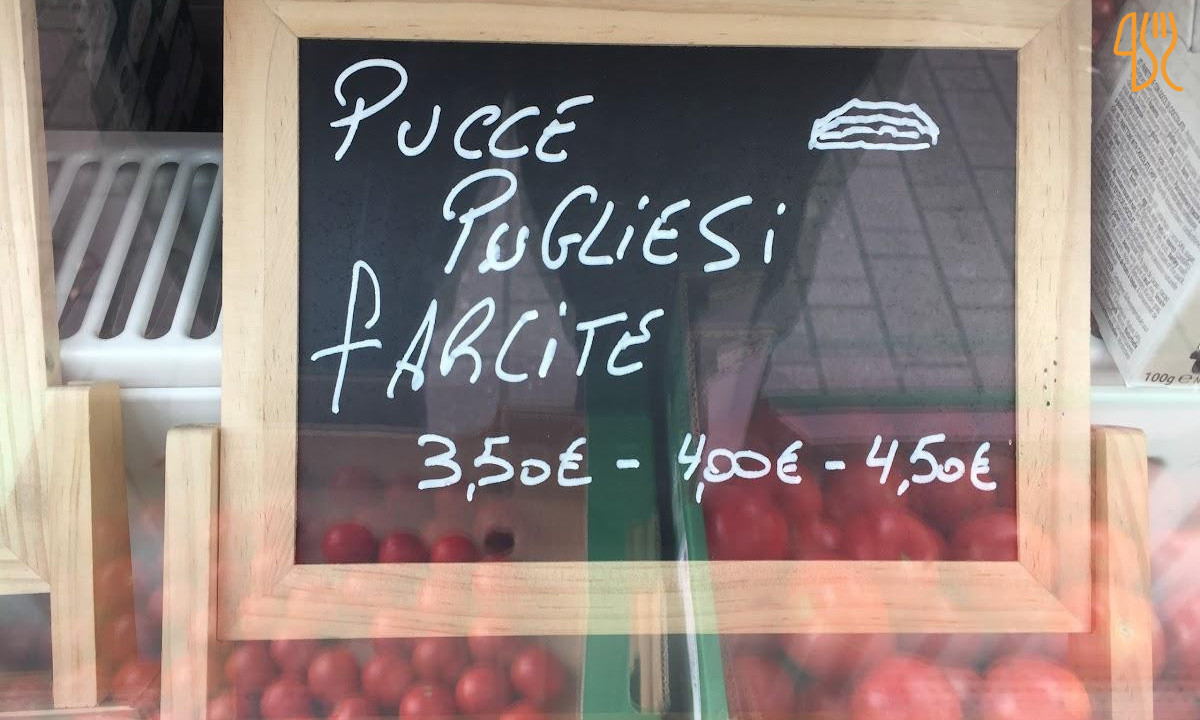 PUCCE
PUGLIESI
FARCITE
3,50€ - 4,00€ - 4,50€
100g e